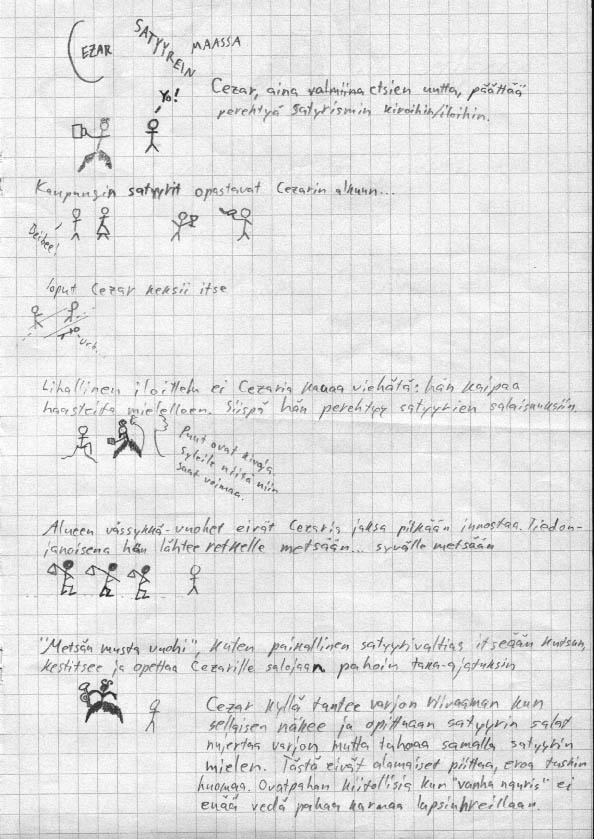 CEZAR SATYYREIN MAASSA
Yo!
Cezar, aina valmiina etsien uutta, päättää
perehtyä satyrismin kiroihin/iloihin.
Kaupungin satyyrit opastavat Cezarin alkuun...
Beibee!
loput Cezar keksii itse
Urh...
Lihallinen iloittelu ei Cezaria kauaa viehätä: hän kaipaa
haasteita mielelleen. Siispä hän perehtyy satyyrien salaisuuksiin.
Puut ovat kivoja.
Syleile niitä niin
saat voimaa.
Alueen vässykkä-vuohet eivät Cezaria jaksa pitkään innostaa. Tiedon-
janoisena hän lähtee retkelle metsään... syvälle metsään
"Metsän musta vuohi", kuten paikallinen satyyrivaltias itseään kutsuu,
kestitsee ja opettaa Cezarille salojaan pahoin taka-ajatuksin
Cezar kyllä tuntee varjon riivaaman kun
sellaisen näkee ja opittuaan satyyrin salat
nujertaa varjon mutta tuhoaa samalla satyyrin
mielen. Tästä eivät alamaiset piittaa, eroa tuskin
huomaa. Ovatpahan kiitollisia kun "vanha nauris" ei
enää vedä pahaa karmaa lapsiuhreillaan.